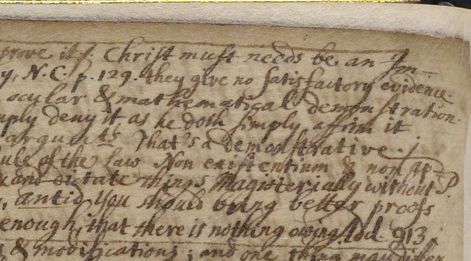 prove it / Christ must needs be an Im-
y. N.C. p. 129. they give no satisfactory evidence.
ocular & mathematical demonstration.
ply deny it as he doth simply affirm it
argumts. That's a demonstrative /
ule of the Law Non existentium & non
and dictate things Magisterially without
, and you should bring better proofs
enough, that there is nothing owing 913
& modifications; and one thing may differ